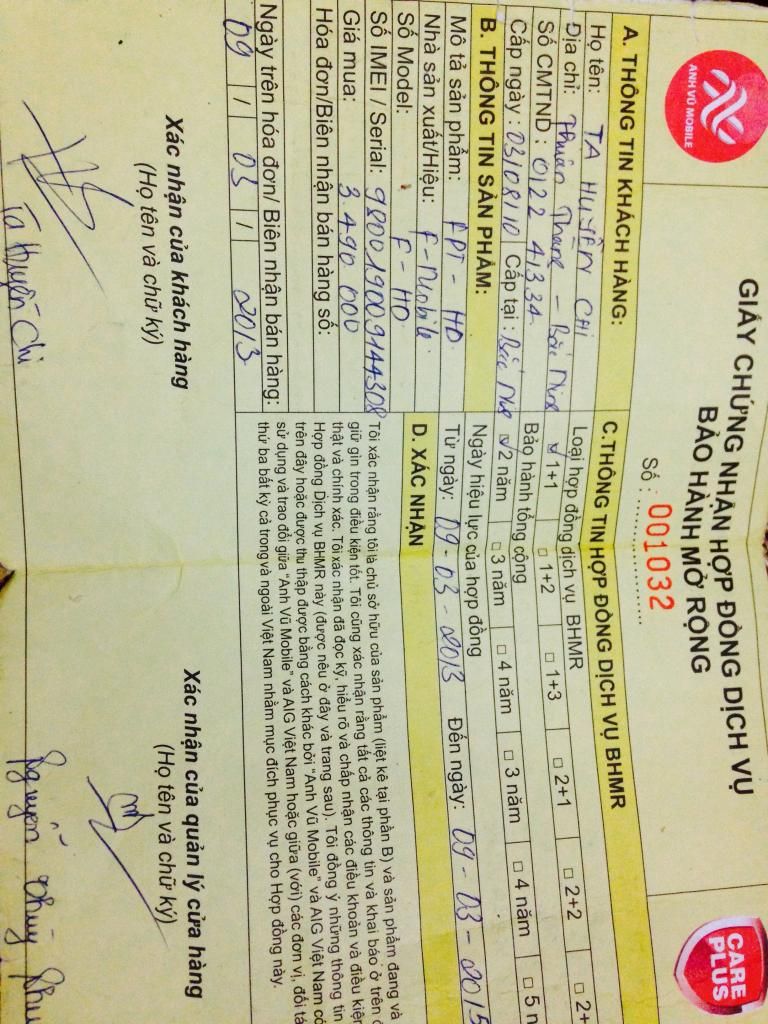 ANH VŨ MOBILE
GIẤY CHỨNG NHẬN HỢP ĐỒNG DỊCH VỤ
BẢO HÀNH MỞ RỘNG
Số: 001032
CARE
PLUS
A. THÔNG TIN KHÁCH HÀNG:
Họ tên: TẠ HUYỀN CHI
Địa chỉ: Thuận Thành - Bắc Ninh
Số CMTND: 012241334
Cấp ngày: 03/08/10 Cấp tại: Bắc Ninh
B. THÔNG TIN SẢN PHẨM:
Mô tả sản phẩm: FPT - HD
Nhà sản xuất/Hiệu: F-Mobile
Số Model: F - HD
Số IMEI / Serial: 980019009144308
Giá mua: 3.490.000
Hóa đơn/Biên nhận bán hàng số:
Ngày trên hóa đơn/ Biên nhận bán hàng:
09 / 03 / 2013
C.THÔNG TIN HỢP ĐỒNG DỊCH VỤ BHMR
Loại hợp đồng dịch vụ BHMR
1+1 1+2 1+3 2+1 2+2 2+
Bảo hành tổng cộng
2 năm 3 năm 4 năm 3 năm 4 năm 5 n
Ngày hiệu lực của hợp đồng
Từ ngày: 09-03-2013 Đến ngày: 09-03-2015
D. XÁC NHẬN
Tôi xác nhận rằng tôi là chủ sở hữu của sản phẩm (liệt kê tại phần B) và sản phẩm đang và
giữ gìn trong điều kiện tốt. Tôi cũng xác nhận rằng tất cả các thông tin và khai báo ở trên
thật và chính xác. Tôi xác nhận đã đọc kỹ, hiểu rõ và chấp nhận các điều khoản và điều kiện
Hợp đồng Dịch vụ BHMR này (được nêu ở đây và trang sau). Tôi đồng ý những thông tin
trên đây hoặc được thu thập được bằng cách khác bởi "Anh Vũ Mobile" và AIG Việt Nam có
sử dụng và trao đổi giữa "Anh Vũ Mobile" và AIG Việt Nam hoặc giữa (với) các đơn vị, đối tá
thứ ba bất kỳ cả trong và ngoài Việt Nam nhằm mục đích phục vụ cho Hợp đồng này.
Xác nhận của khách hàng
(Họ tên và chữ ký)
Tạ Huyền Chi
Xác nhận của quản lý cửa hàng
(Họ tên và chữ ký)
Nguyễn